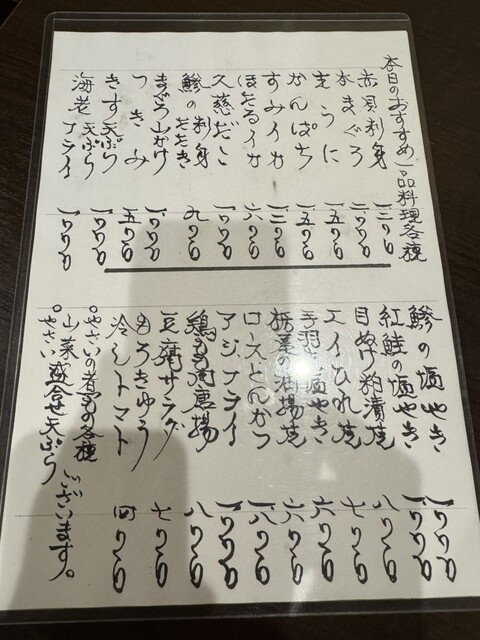 本日のおすすめ一品料理各種
赤貝刺身 一二〇〇
本まぐろ 二〇〇〇
生うに 一五〇〇
かんぱち 一五〇〇
すみイカ 一二〇〇
ほたるイカ 六〇〇
久慈だこ 一〇〇〇
鯵の刺身たたき 九〇〇
まぐろ山かけ 一〇〇〇
つきみ 五〇〇
きす天ぷら 一〇〇〇
海老フライ 一〇〇〇
鯵の塩やき 一〇〇〇
紅鮭の塩やき 一〇〇〇
目ぬけ粕漬焼 八〇〇
エイひれ焼 七〇〇
手羽先塩やき 六〇〇
栃尾の油揚焼 六〇〇
ロースとんかつ 一八〇〇
アジフライ 一〇〇〇
鶏もも肉唐揚 八〇〇
豆腐サラダ 七〇〇
もろきゅう
冷しトマト 四〇〇
○やさいの煮もの各種
○山菜やさい盛合せ天ぷら
ございます。